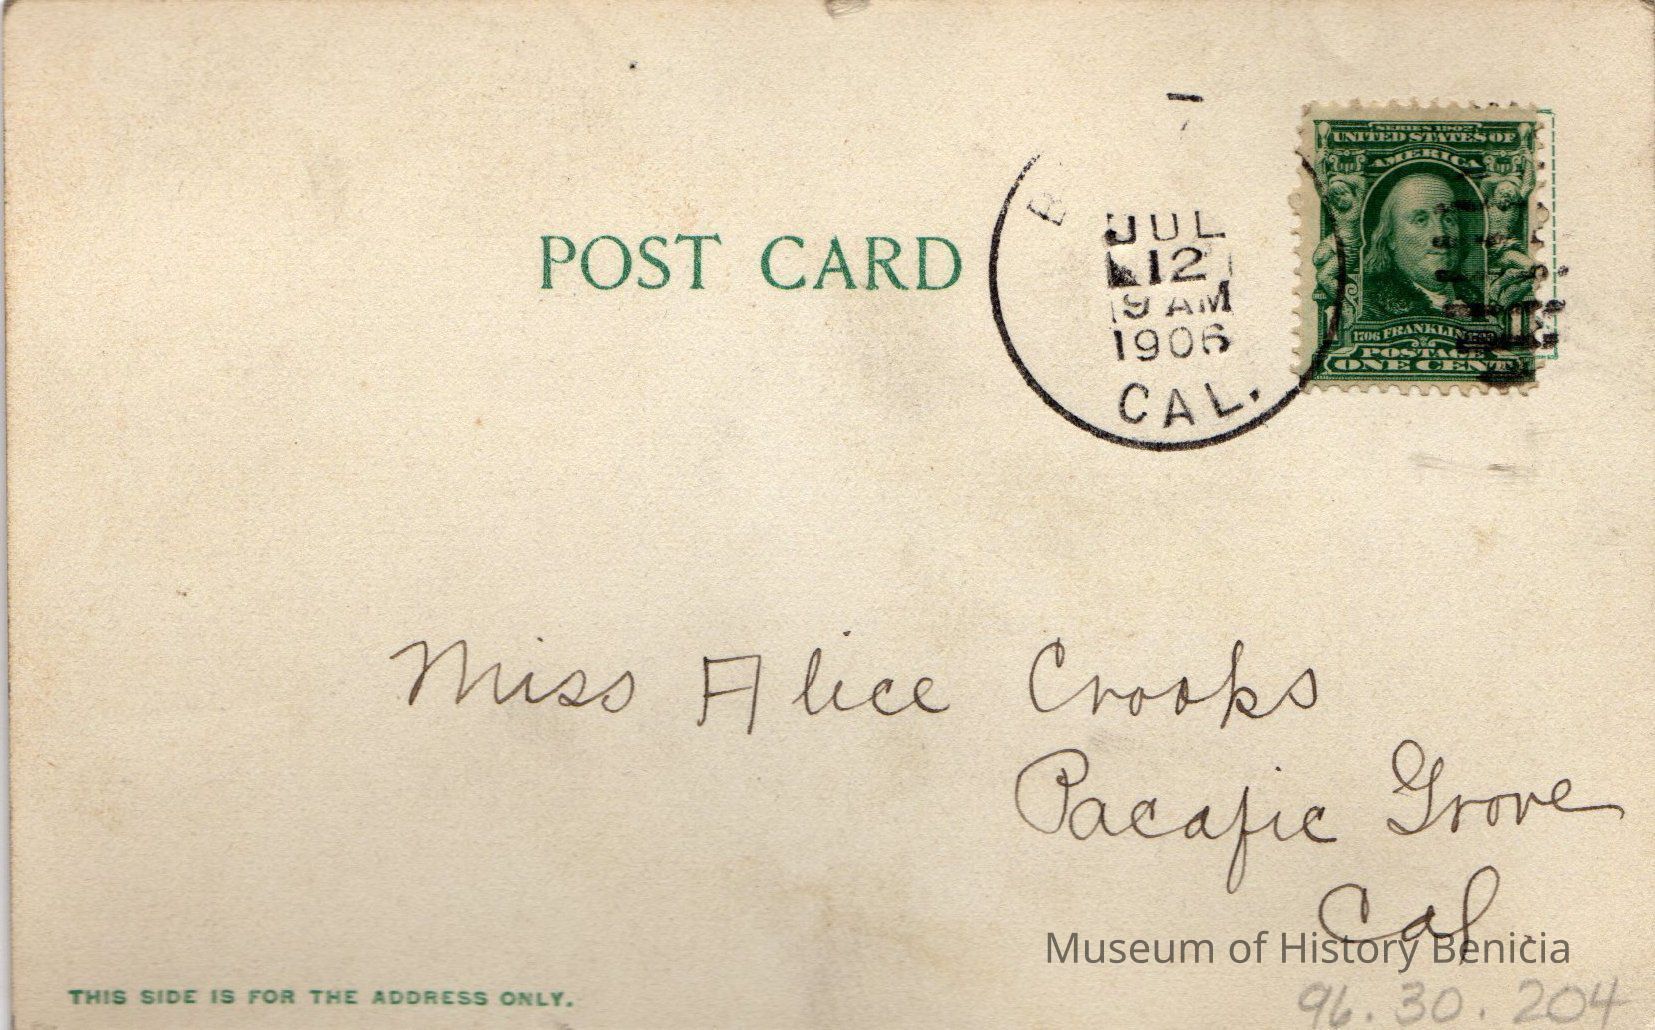 SERIES 1902
UNITED STATES OF
AMERICA
POST CARD
JUL
12
9 AM
1906
CAL.
1706 FRANKLIN
POSTAGE
ONE CENT
Miss Alice Crooks
Pacafic Grove
Cal.
Museum of History Benicia
THIS SIDE IS FOR THE ADDRESS ONLY.
96.30.204